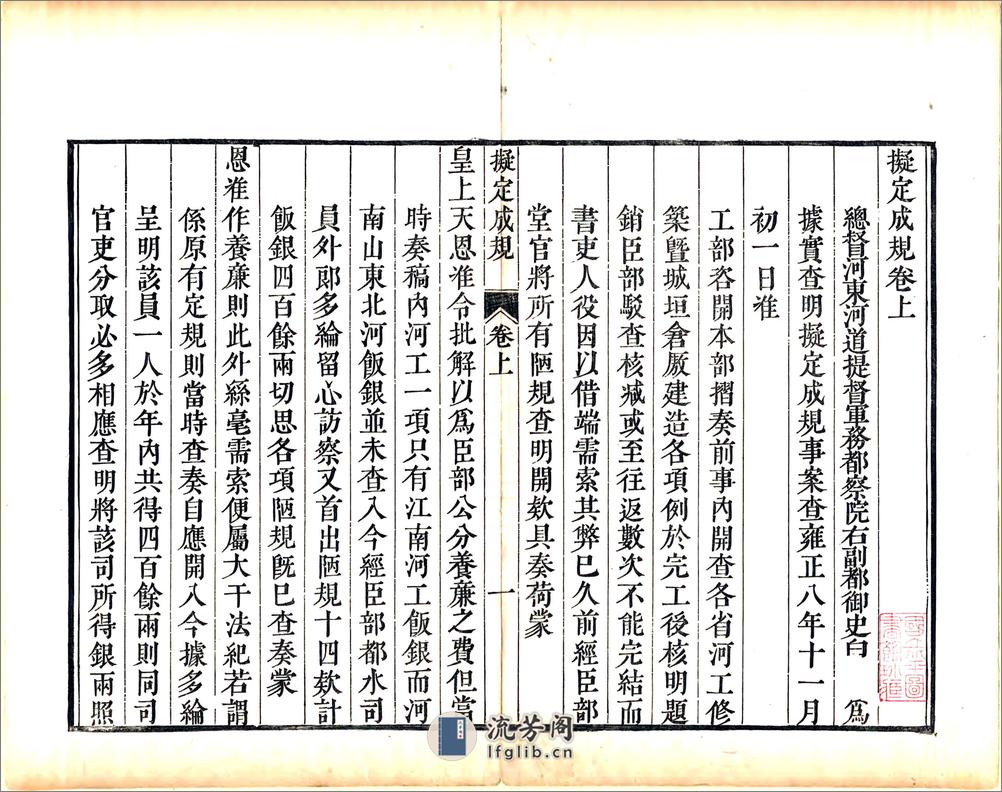 擬定成規卷上
總督河東河道提督軍務都察院右副都御史白　爲
據實查明擬定成規事案查雍正八年十一月
初一日准
工部咨開本部摺奏前事內開查各省河工修
築暨城垣倉厫建造各項例於完工後核明題
銷臣部駁查核減或至往返數次不能完結而
書吏人役因以借端需索其弊已久前經臣部
堂官將所有陋規查明開欵具奏荷蒙
擬定成規
卷上
一
皇上天恩准令批解以爲臣部公分養廉之費但當
時奏稿內河工一項只有江南河工飯銀而河
南山東北河飯銀並未查入今經臣部都水司
員外郎多綸留心訪察又首出陋規十四欵計
飯銀四百餘兩切思各項陋規旣已查奏蒙
恩准作養廉則此外絲毫需索便屬大干法紀若謂
係原有定規則當時查奏自應開入今據多綸
呈明該員一人於年內共得四百餘兩則同司
官吏分取必多相應查明將該司所得銀兩照
流芳阁
lfglib.cn